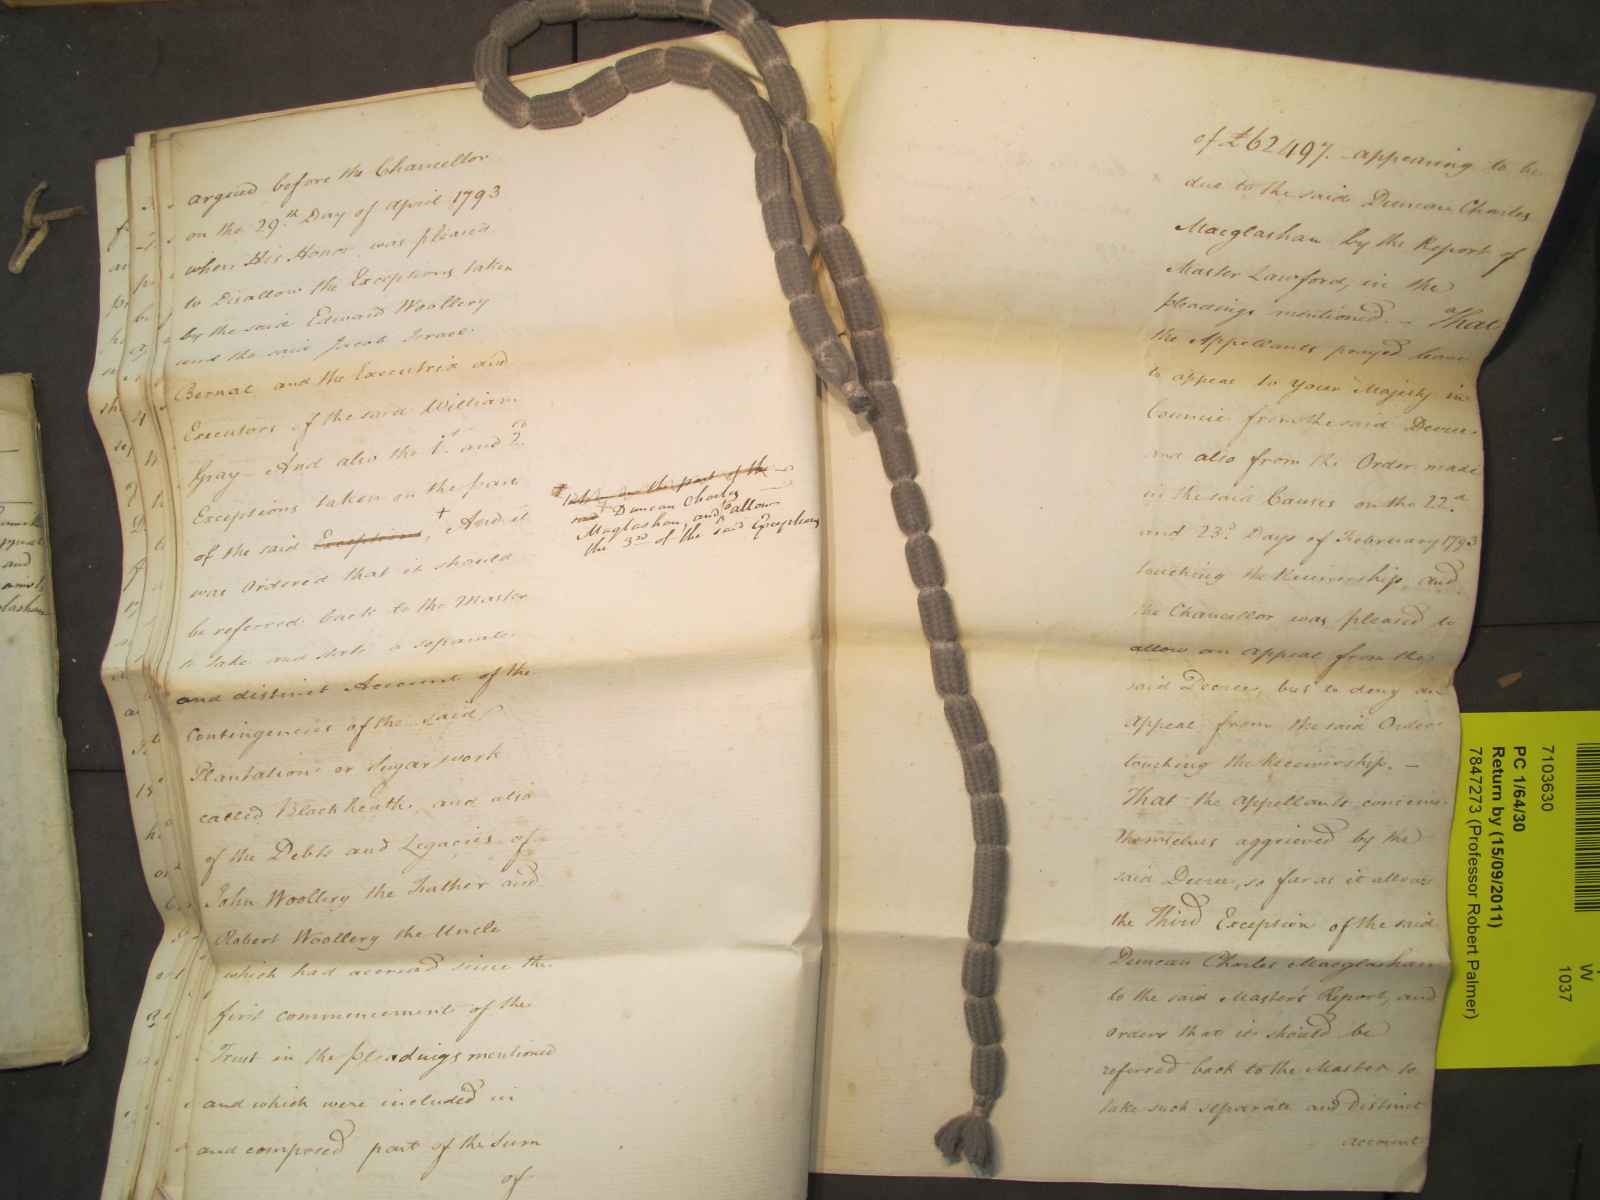 argued before the Chancellor
on the 29th Day of April 1793
when His Honor was pleased
to Disallow the Exceptions taken
by the said Edward Woollery
and the said Jacob Israel
Bernal and the Executrix and
Executors of the said William
Gray - And also the 1st and 2d
Exceptions taken on the part
of the said Exceptions, + And it
was Ordered that it should
be referred back to the Master
to take and state a separate
and distinct Account of the
Contingencies of the said
Plantation or Sugar work
called Blackheath, and also
of the Debts and Legacies of
John Woollery the Father and
Robert Woollery the Uncle
which had accrued since the
first commencement of the
Trust in the pleadings mentioned
and which were included in
and composed part of the Sum
of
+ taken on the part of the
said Duncan Charles
Maglashan, and allow
the 3rd of the said Exceptions
of £62497. appearing to be
due to the said Duncan Charles
Macglashan by the Report of
Master Lawford, in the
pleadings mentioned. - That
the Appellants prayed leave
to appeal to Your Majesty in
Council from the said Decree
and also from the Order made
in the said Causes on the 22d
and 23d Days of February 1793
touching the Receivership, and
the Chancellor was pleased to
allow an appeal from the
said Decree, but to deny an
appeal from the said Order
touching the Receivership. -
That the appellants conceive
themselves aggrieved by the
said Decree, so far as it allows
the Third Exception of the said
Duncan Charles Macglashan
to the said Master's Report, and
orders that it should be
referred back to the Master to
take such separate and distinct
account
7103630
PC 1/64/30
Return by (15/09/2011)
7847273 (Professor Robert Palmer)
W
1037